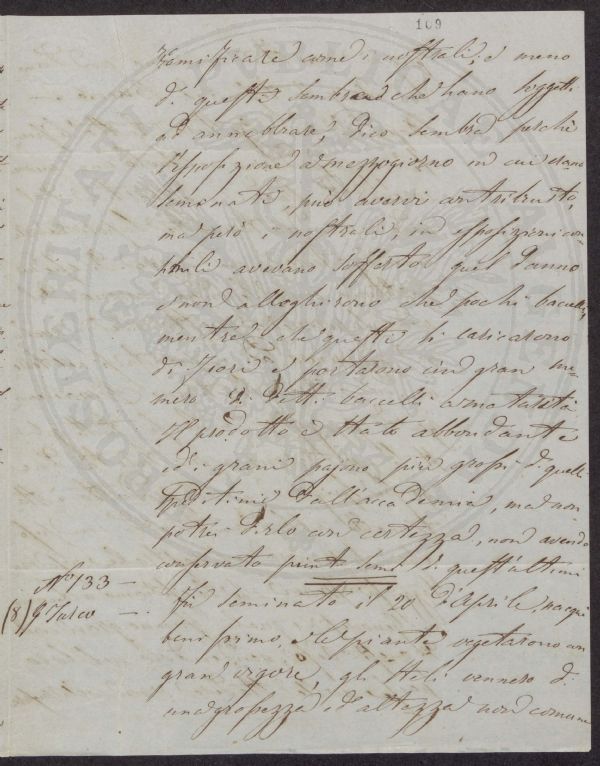 109
ramificare come i nostrali, e meno
di questi sembrano che siano soggetti
ad annebbiare, dico sembra perchè
l'esposizione a mezzogiorno in cui erano
seminate, può avervi contribuito,
ma però i nostrali, in esposizioni con-
simili avevano sofferto quel danno
e non alleghirono che pochi baccelli,
mentre che questi si caricarono
di fiori e portarono un gran nu-
mero di detti baccelli a maturità
Il prodotto è stato abbondante
ed i grani pajono più grossi di quelli
speditimi dall'accademia, ma non
potrei dirlo con certezza, non avendo
conservato punto seme di quest'ultimi
N.º 133 —
fù seminato il 20 d'Aprile, nacque
(8)
benissimo, e le piante vegetarono con
gran vigore, gli steli vennero di
una grossezza ed altezza non comune